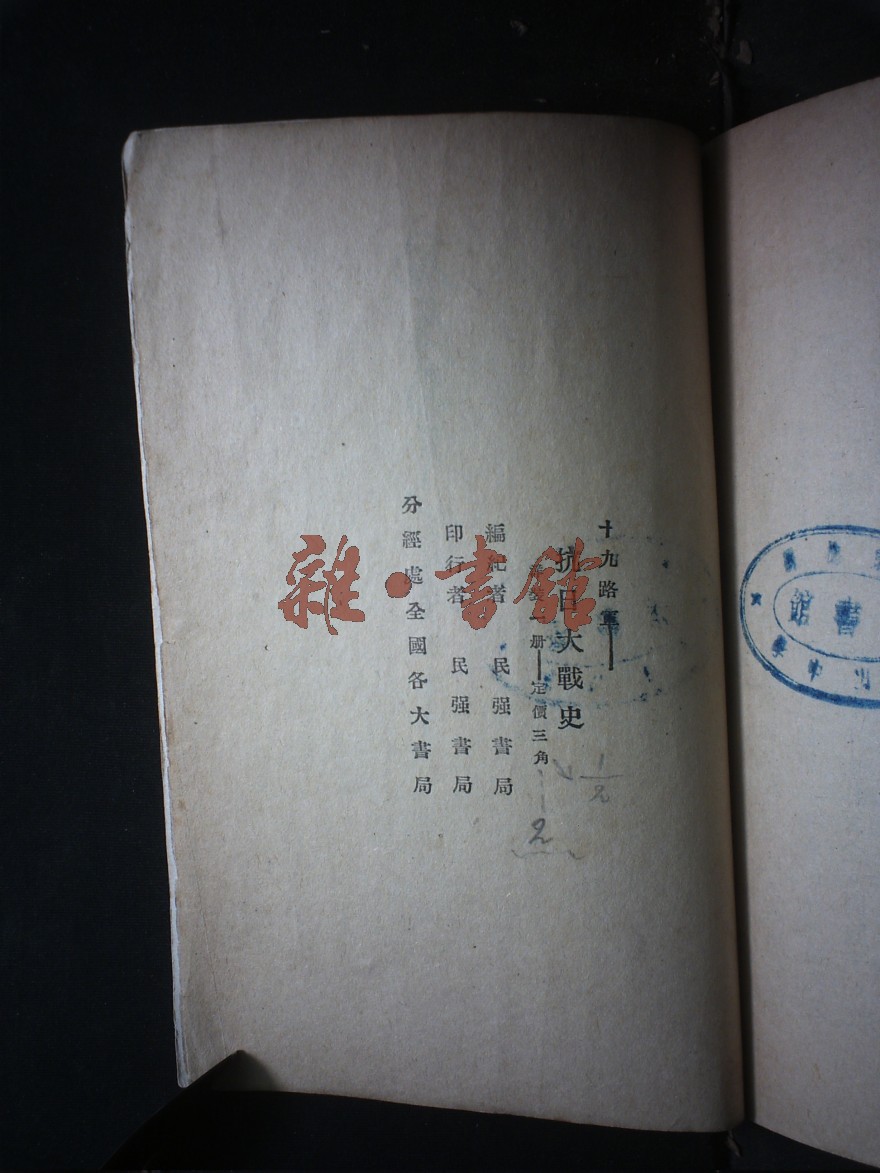 十九路軍
抗日大戰史
一册—定價三角
編者 民强書局
印行者 民强書局
分經處全國各大書局
雜·書館
1/2
2
書館